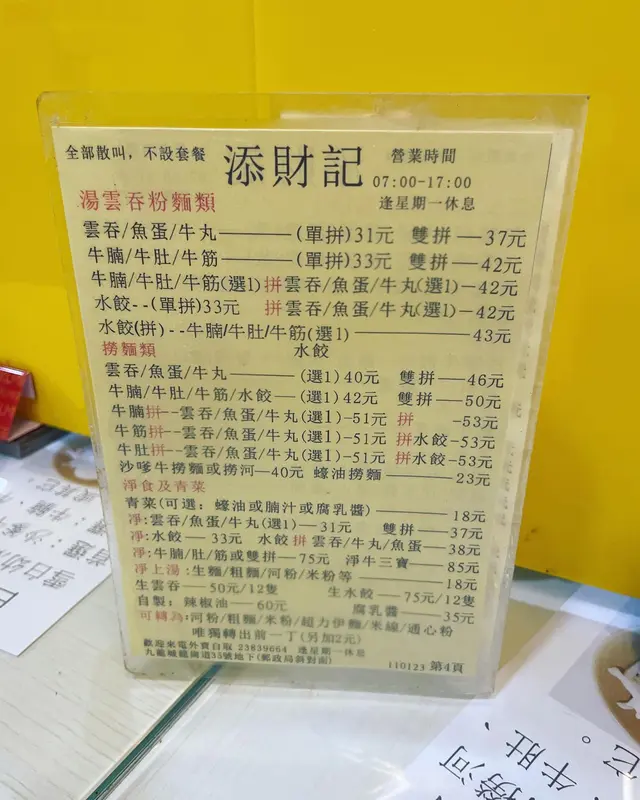 全部散叫，不設套餐 添財記 營業時間
07:00-17:00
湯雲吞粉麵類 逢星期一休息
雲吞/魚蛋/牛丸———(單拼)31元 雙拼—37元
牛腩/牛肚/牛筋———(單拼)33元 雙拼—42元
牛腩/牛肚/牛筋(選1)拼雲吞/魚蛋/牛丸(選1)—42元
水餃--(單拼)33元 拼雲吞/魚蛋/牛丸(選1)—42元
水餃(拼)--牛腩/牛肚/牛筋(選1)————43元
撈麵類 水餃
雲吞/魚蛋/牛丸———(選1)40元 雙拼—46元
牛腩/牛肚/牛筋/水餃—(選1)42元 雙拼—50元
牛腩拼--雲吞/魚蛋/牛丸(選1)-51元 拼 -53元
牛筋拼--雲吞/魚蛋/牛丸(選1)-51元 拼水餃-53元
牛肚拼--雲吞/魚蛋/牛丸(選1)-51元 拼水餃-53元
沙嗲牛撈麵或撈河—40元 蠔油撈麵———23元
淨食及青菜
青菜(可選：蠔油或腩汁或腐乳醬)————18元
淨:雲吞/魚蛋/牛丸(選1)—31元 雙拼—37元
淨:水餃— 33元 水餃拼雲吞/牛丸/魚蛋—38元
淨:牛腩/肚/筋或雙拼—75元 淨牛三寶——85元
淨上湯：生麵/粗麵/河粉/米粉等————18元
生雲吞——50元/12隻 生水餃——75元/12隻
自製：辣椒油—60元 腐乳醬——35元
可轉為:河粉/粗麵/米粉/超力伊麵/米線/通心粉
唯獨轉出前一丁(另加2元)
歡迎來電外賣自取 23839664 逢星期一休息
九龍城龍崗道33號地下(郵政局斜對面)
110123 第4頁
撈河
牛肚、
它。